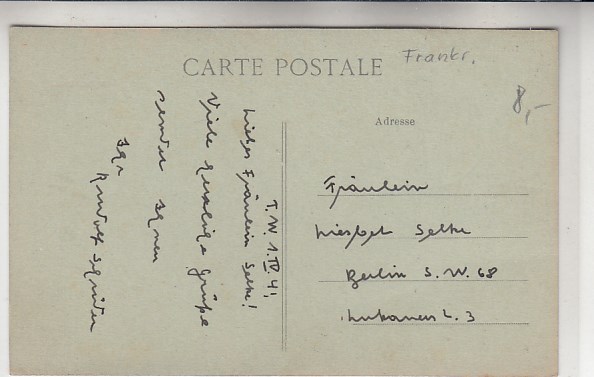 CARTE POSTALE
Frankr.
8,-
Adresse
T. W. 1. IV. 41.
Liebes Fräulein Selke!
Viele herzliche Grüße
sendet Ihnen
Ihr
Fräulein
Liesbet Selke
Berlin S. W. 68
3